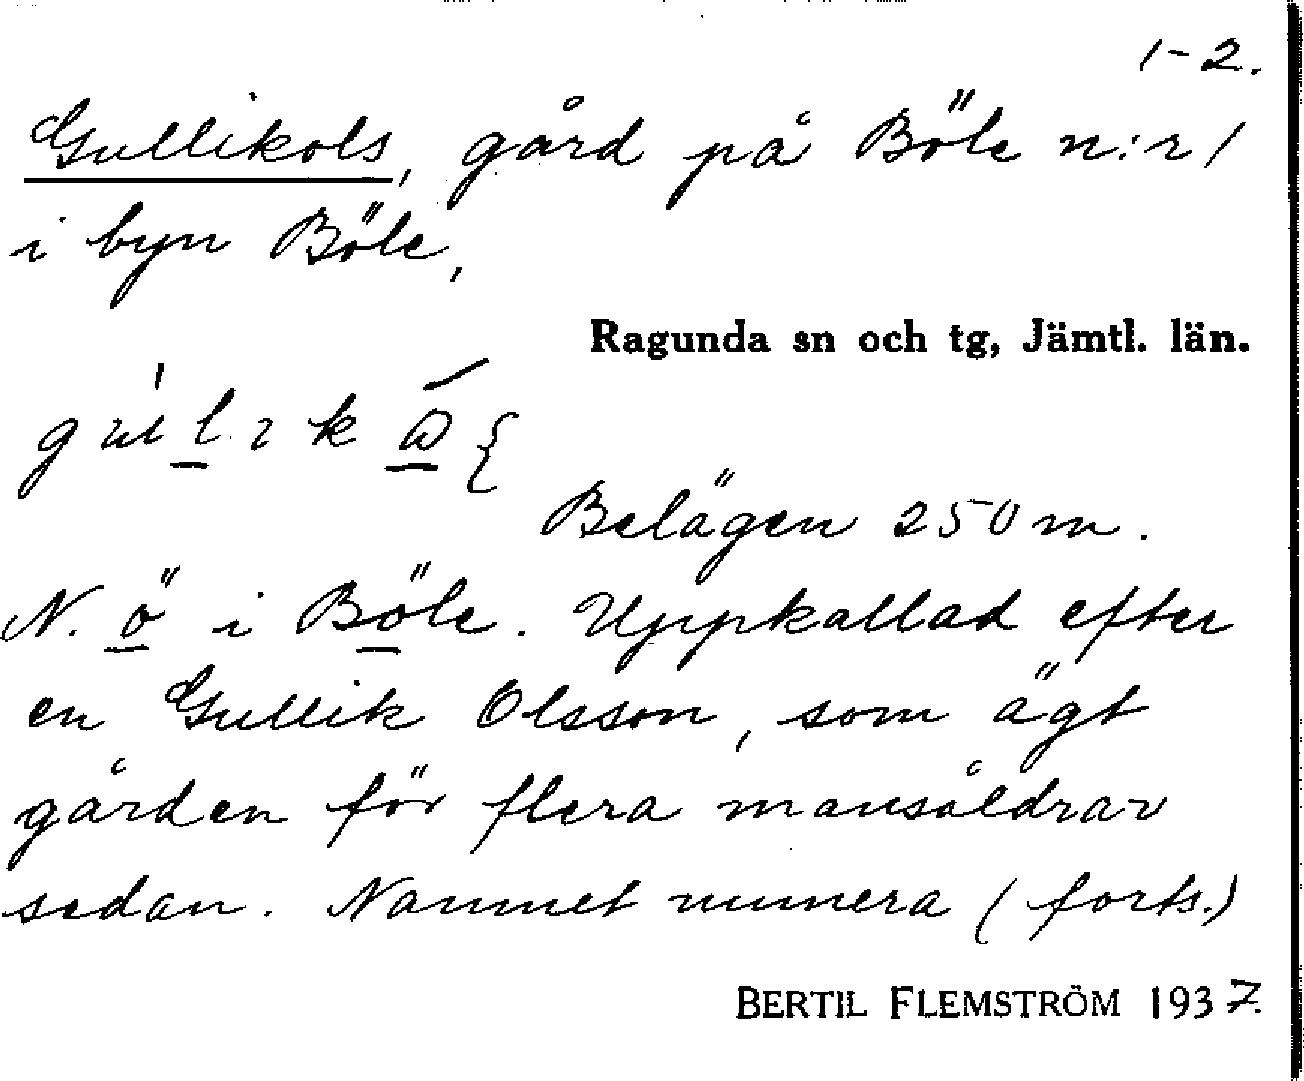 1-2.
Gullikols, gård på Böle n:r 1
i byn Böle,
Ragunda sn och tg, Jämtl. län.
Belägen 250 m.
N. ö i Böle. Uppkallad efter
en Gullik Olsson, som ägt
gården för flera mansåldrar
sedan. Namnet numera (forts.)
BERTIL FLEMSTRÖM 1937.